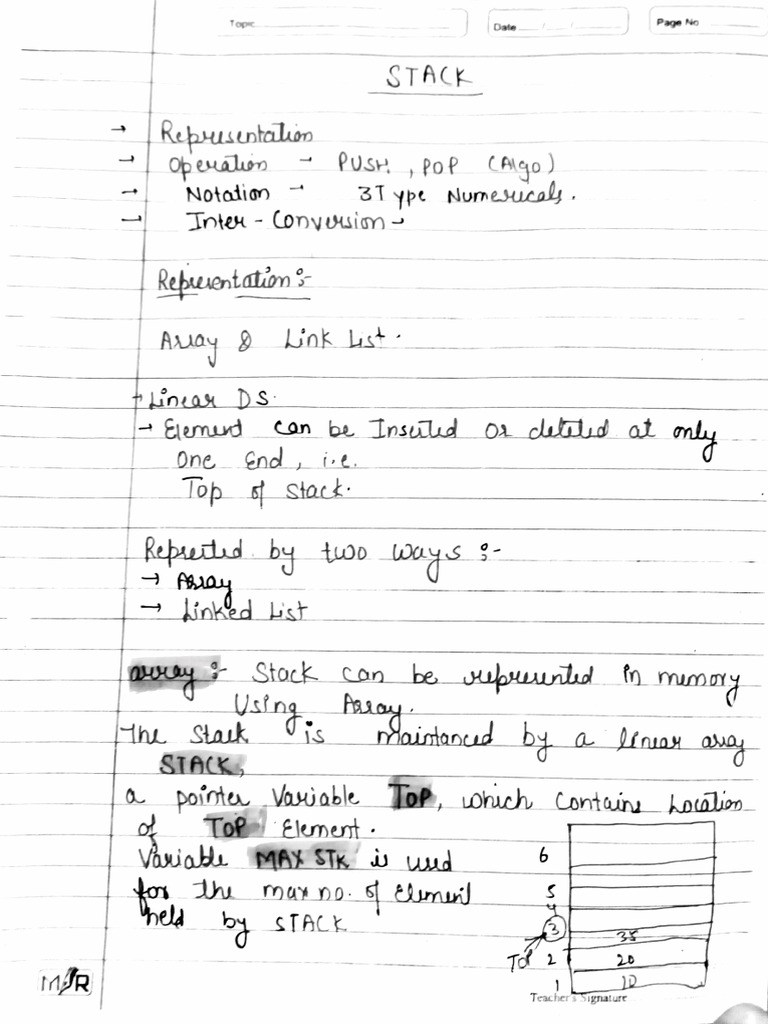 Topic
Date
Page No
STACK
→ Representation
→ Operation → PUSH, POP (Algo)
→ Notation → 3 Type Numericals.
→ Inter - Conversion →
Representation :-
Array & Link List.
→ Linear DS.
→ Element can be Inserted or deleted at only
One End, i.e.
Top of Stack.
Represted by two ways :-
→ Array
→ Linked List
array :- Stack can be represented in memory
Using Array.
The Stack is maintanced by a linear array
STACK,
a pointer Variable TOP, which Contains Location
of TOP Element.
Variable MAX STK is used
for the max no. of Element
held by STACK
6
5
4
3 35
TOP 2 20
1 10
Teacher's Signature